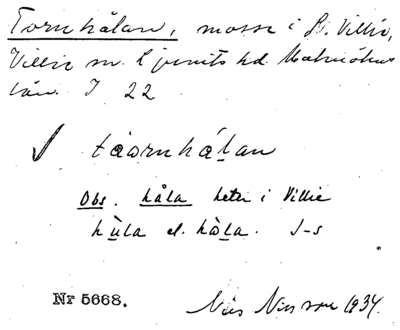 Tornhålan, mosse i St. Villie,
Villie sn. Ljunits hd. Malmöhus
län. I 22
√ tåɑrnhá̱lan
Obs. håla heter i Villie
hu̱la el. hòla. J-s
Nr 5668.
Nils Nilsson 1934.